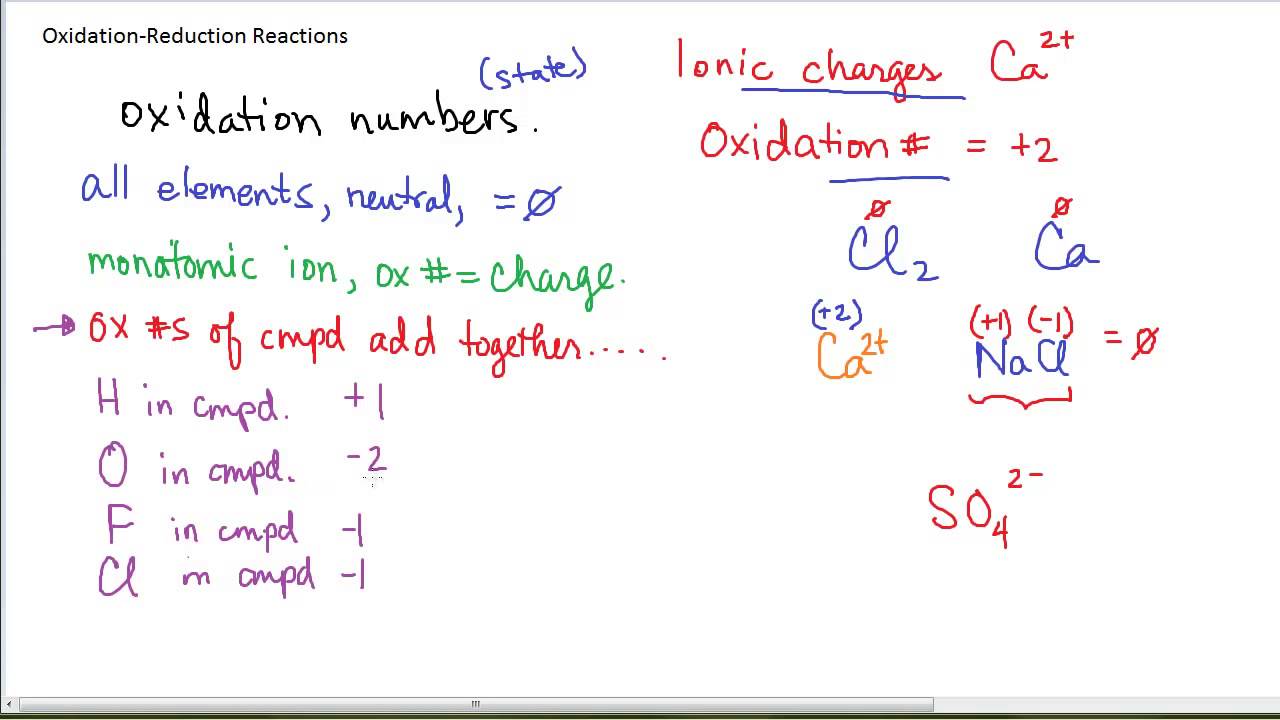 Oxidation-Reduction Reactions
(state)
oxidation numbers.
all elements, neutral, = ∅
monatomic ion, ox # = charge.
→ ox #s of cmpd add together.....
H in cmpd. +1
O in cmpd. -2
F in cmpd -1
Cl in cmpd -1
Ionic charges Ca²⁺
Oxidation # = +2
∅ ∅
Cl₂ Ca
(+2) (+1) (-1)
Ca²⁺ NaCl = ∅
SO₄²⁻